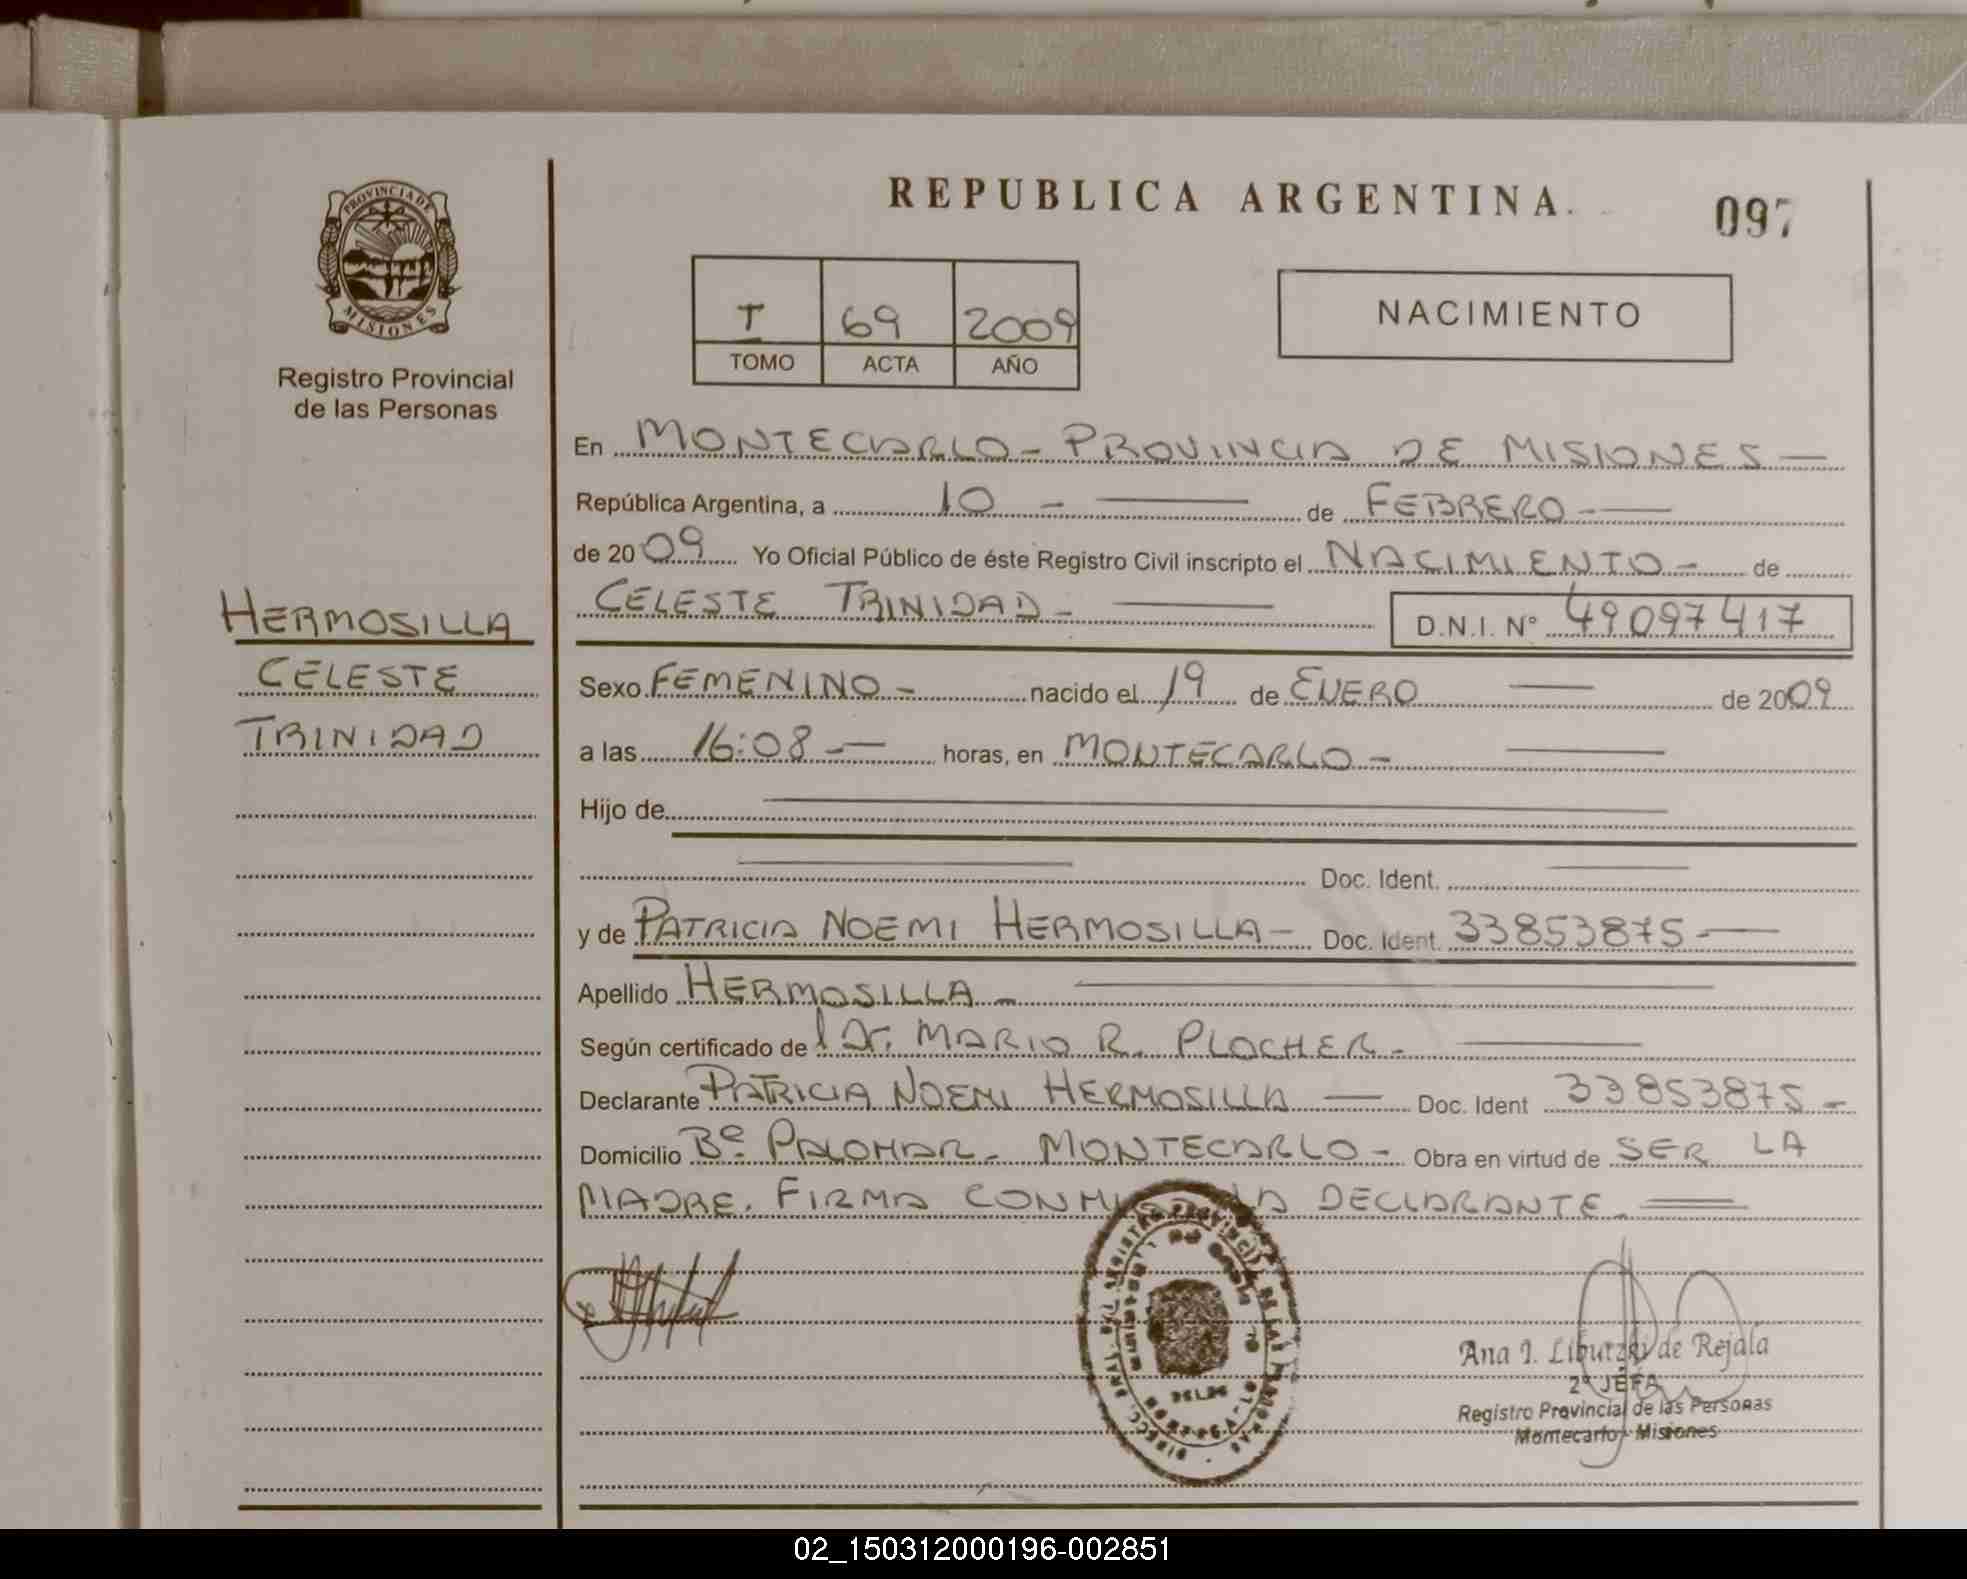 REPUBLICA ARGENTINA
097
PROVINCIA DE
MISIONES
Registro Provincial
de las Personas
I 69 2009
TOMO ACTA AÑO
NACIMIENTO
En MONTECARLO - PROVINCIA DE MISIONES —
República Argentina, a 10 - — de FEBRERO - —
de 2009 Yo Oficial Público de éste Registro Civil inscripto el NACIMIENTO - de
CELESTE TRINIDAD - — D.N.I. N° 49097417
HERMOSILLA
CELESTE
TRINIDAD
Sexo FEMENINO - nacido el 19 de ENERO — de 2009
a las 16:08 - — horas, en MONTECARLO - —
Hijo de —
— Doc. Ident. —
y de PATRICIA NOEMI HERMOSILLA - Doc. Ident. 33853875 - —
Apellido HERMOSILLA - —
Según certificado de l Dr. MARIO R. PLOCHER - —
Declarante PATRICIA NOEMI HERMOSILLA — Doc. Ident 33853875 -
Domicilio Bº PALOMAR - MONTECARLO - Obra en virtud de SER LA
MADRE. FIRMA CONMIGO LA DECLARANTE. —
Ana I. Liburzki de Rejala
2° JEFA
Registro Provincial de las Personas
Montecarlo - Misiones
02_150312000196-002851